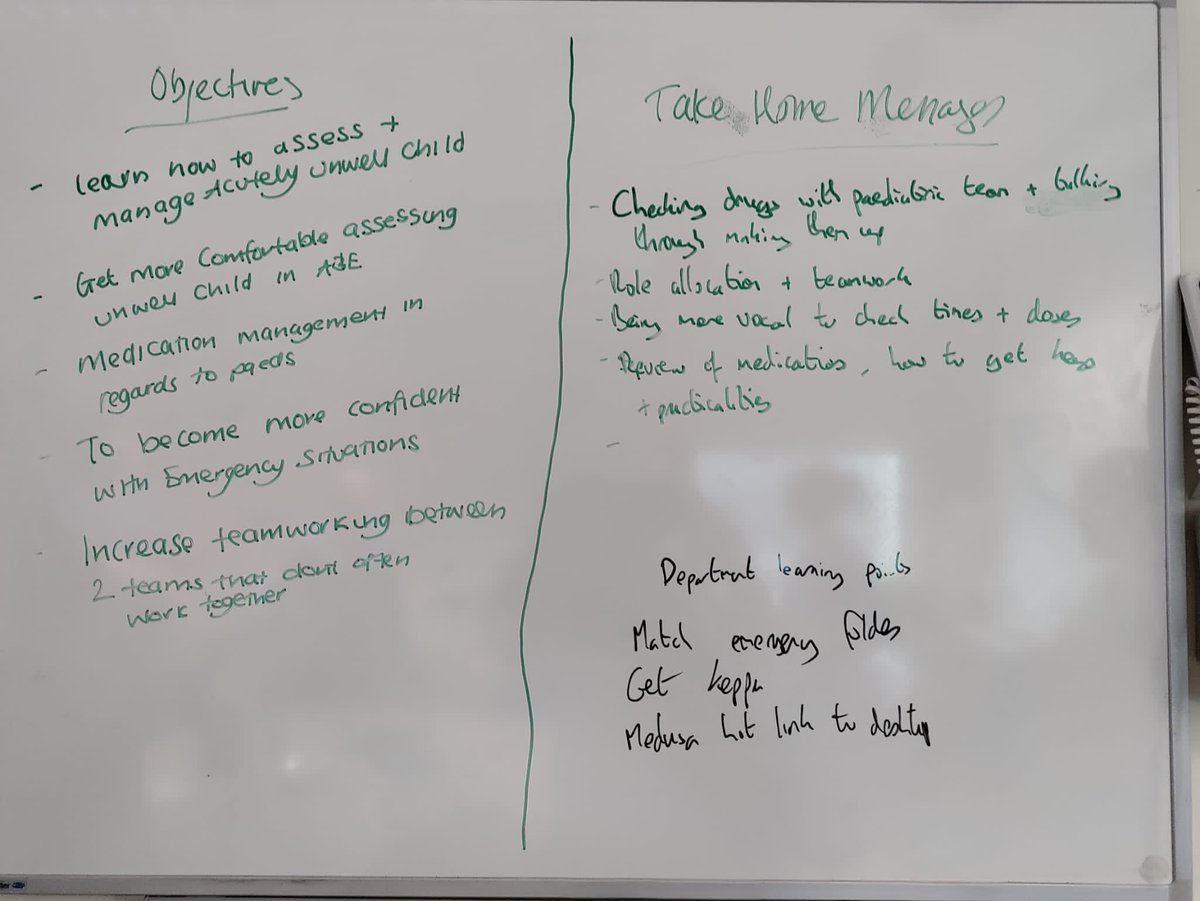 Objectives
- Learn how to assess +
manage Acutely unwell child
- Get more comfortable assessing
unwell child in A&E
- Medication management in
regards to paeds
- To become more confident
with Emergency Situations
- Increase teamworking between
2 teams that don't often
work together
Take Home Messages
- Checking drugs with paediatric team + talking
through making them up
- Role allocation + teamwork
- Being more vocal to check times + doses
- Review of medications, how to get
+ practicalities
-
Department learning points
Match emergency folders
Get keppra
Medusa hot link to desktop